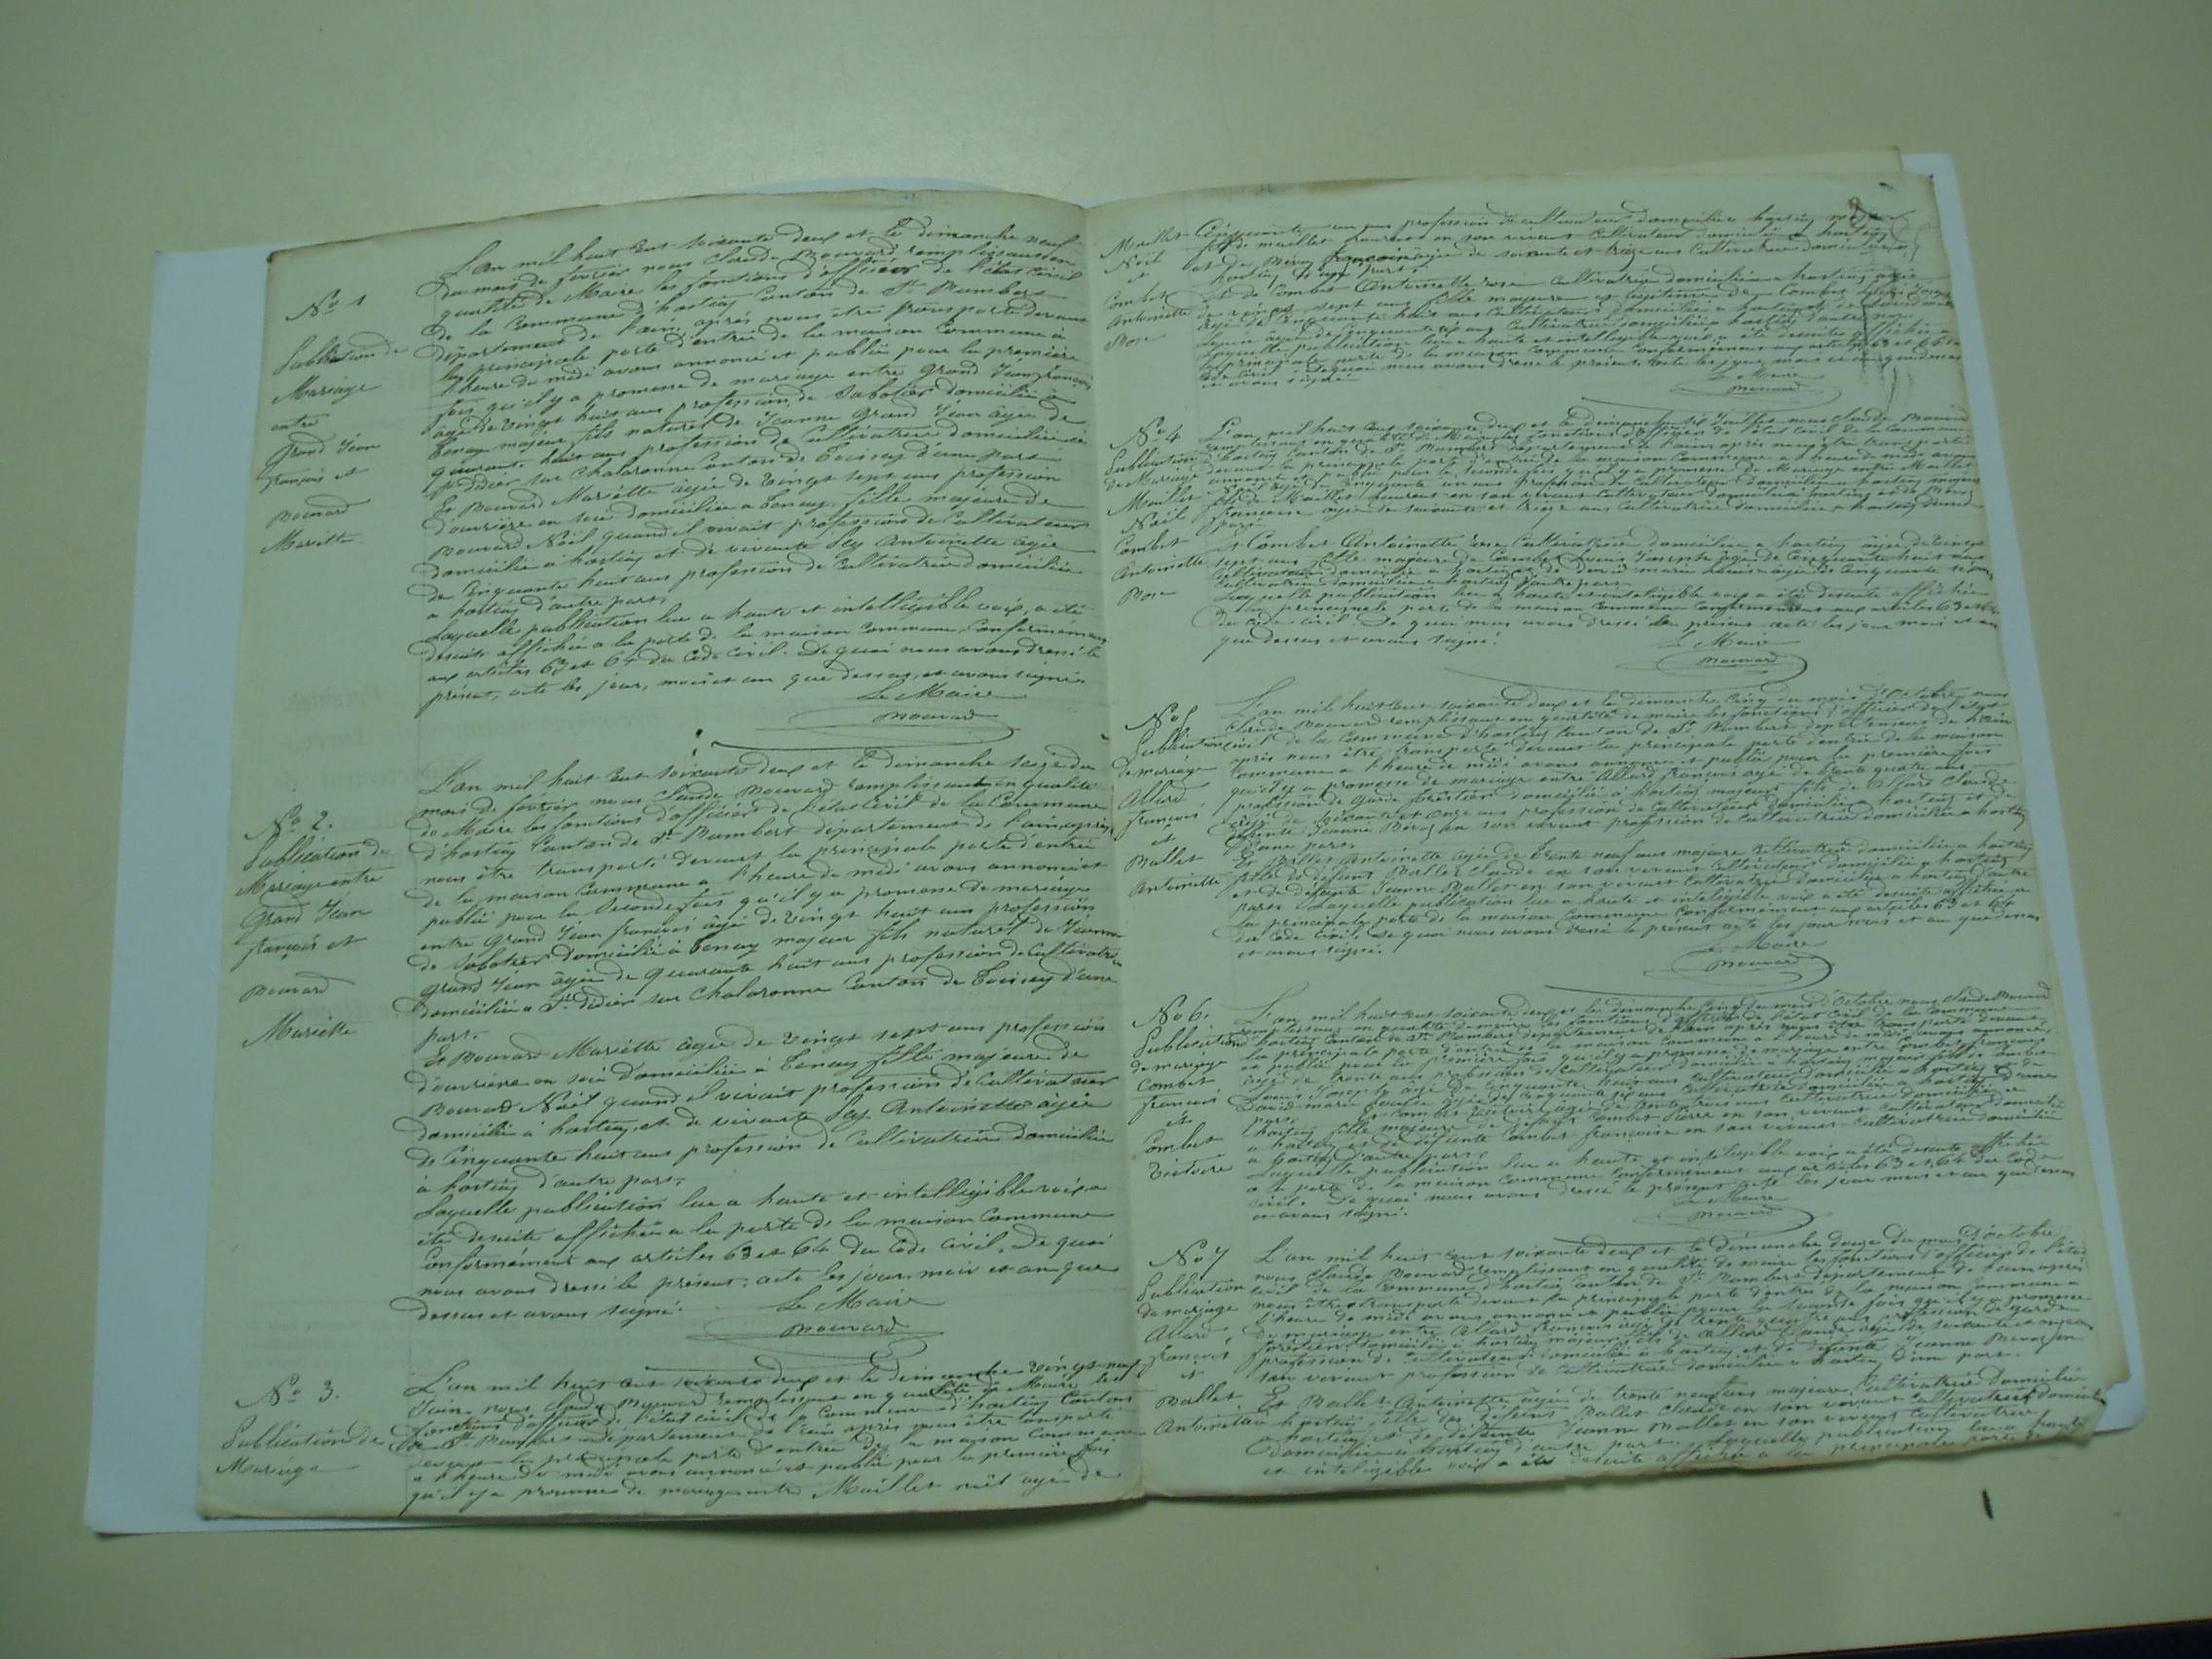 No 1
Publication de
Mariage
entre
Grand Jean
françois et
Bouvard
Mariette
L'an mil huit cent soixante deux et le dimanche neuf
du mois de février nous Claude Bouvard remplissant en
qualité de Maire les fonctions d'officier de l'état civil
de la Commune d'hostiaz Canton de St Rambert
département de l'ain, après nous être transporté devant
la principale porte d'entrée de la maison Commune à
l'heure de midi avons annoncé et publié pour la première
fois qu'il y a promesse de mariage entre Grand Jean françois
âgé de vingt huit ans profession de Sabotier domicilié à
Tenay majeur fils naturel de Jeanne Grand Jean âgée de
quarante huit ans profession de Cultivatrice domiciliée à
St didier sur Chalaronne Canton de Toissey d'une part
Et Bouvard Mariette âgée de vingt sept ans profession
d'ouvrière en soie domiciliée à Tenay, fille majeure de
Bouvard Noël quand il vivait profession de Cultivateur
domicilié à hostiaz et de vivante Antoinette âgée
de Cinquante huit ans profession de Cultivatrice domiciliée
a hostiaz d'autre part.
Laquelle publication lue a haute et intelligible voix, a été
desuite affichée a la porte de la maison Commune, Conformément
aux articles 63 et 64 du Code Civil. De quoi nous avons dressé le
présent, acte les jour, mois et an que dessus, et avons signé
Le Maire
Bouvard
No 2.
Publication de
Mariage entre
Grand Jean
françois et
Bouvard
Mariette
L'an mil huit cent soixante deux et le dimanche seize du
mois de février nous Claude Bouvard remplissant en qualité
de Maire les fonctions d'officier de l'état Civil de la Commune
d'hostiaz Canton de St Rambert département de l'ain, après
nous être transporté devant la principale porte d'entrée
de la maison Commune a l'heure de midi avons annoncé et
publié pour la Seconde fois qu'il y a promesse de mariage
entre Grand Jean françois âgé de vingt huit ans profession
de Sabotier domicilié à Tenay majeur fils naturel de Jeanne
grand Jean âgée de quarante huit ans profession de Cultivatrice
domiciliée a St didier sur Chalaronne Canton de Toissey d'une
part.
Et Bouvard Mariette âgée de vingt sept ans profession
d'ouvrière en soie domiciliée à Tenay fille majeure de
Bouvard Noël quand il vivait profession de Cultivateur
domicilié à hostiaz, et de vivante Antoinette âgée
de Cinquante huit ans profession de Cultivatrice domiciliée
à hostiaz d'autre part.
Laquelle publication lue a haute et intelligible voix a
été desuite affichée a la porte de la maison Commune
Conformément aux articles 63 et 64 du Code Civil, de quoi
nous avons dressé le présent, acte les jour, mois et an que
dessus et avons signé.
Le Maire
Bouvard
No 3.
Publication de
Mariage
L'an mil huit cent soixante deux et le dimanche vingt neuf
Juin nous Claude Bouvard remplissant en qualité de Maire les
fonctions d'officier de l'état civil de la Commune d'hostiaz Canton
de St Rambert département de l'ain après nous être transporté
devant la principale porte d'entrée de la maison Commune
a l'heure de midi avons annoncé et publié pour la première fois
qu'il y a promesse de mariage entre Maillet noël âgé de
Maillet
Noël
et
Combet
Antoinette
Rose
Cinquante un ans profession de cultivateur domicilié a hostiaz majeur
fils de maillet en son vivant Cultivateur domicilié a hostiaz
et de françoise âgée de soixante et treize ans Cultivatrice domiciliée a
hostiaz d'une part.
Et de Combet Antoinette rose Cultivatrice domiciliée a hostiaz âgée
de vingt sept ans fille majeure et légitime de Combet
âgé de Cinquante huit ans Cultivateur domicilié a hostiaz et de
âgée de Cinquante Cultivatrice domiciliée a hostiaz d'autre part
Laquelle publication lue a haute et intelligible voix a été desuite affichée a
la principale porte de la maison Commune Conformément aux articles 63 et 64 du
Code Civil. De quoi nous avons dressé le présent acte les jour, mois et an que dessus
et avons signé
Le Maire
Bouvard
No 4
Publication
de Mariage
Maillet
Noël
Combet
Antoinette
Rose
L'an mil huit cent soixante deux et le dimanche six Juillet nous Claude Bouvard
remplissant en qualité de Maire les fonctions d'officier de l'état civil de la Commune
d'hostiaz Canton de St Rambert département de l'ain après nous être transporté
devant la principale porte d'entrée de la maison Commune a l'heure de midi avons
annoncé et publié pour la seconde fois qu'il y a promesse de Mariage entre Maillet
Noël âgé de Cinquante un ans profession de Cultivateur domicilié a hostiaz majeur
fils de Maillet en son vivant Cultivateur domicilié a hostiaz et de
françoise âgée de soixante et treize ans Cultivatrice domiciliée a hostiaz d'une
part.
Et Combet Antoinette rose Cultivatrice domiciliée a hostiaz âgée de vingt
sept ans fille majeure de Combet Louis Joseph âgé de Cinquante huit ans
Cultivateur domicilié a hostiaz et de marie âgée de Cinquante
Cultivatrice domiciliée a hostiaz d'autre part.
Laquelle publication lue a haute et intelligible voix a été desuite affichée
a la principale porte de la maison Commune Conformément aux articles 63 et 64
du Code Civil. De quoi nous avons dressé le présent acte les jour mois et an
que dessus et avons signé.
Le Maire
Bouvard
No 5
Publication
de mariage
Allard
françois
et
Ballet
Antoinette
L'an mil huit cent soixante deux et le dimanche Cinq du mois d'Octobre nous
Claude Bouvard remplissant en qualité de maire les fonctions d'officier de l'état
civil de la Commune d'hostiaz Canton de St Rambert département de l'ain
après nous être transporté devant la principale porte d'entrée de la maison
Commune a l'heure de midi avons annoncé et publié pour la première fois
qu'il y a promesse de mariage entre Allard françois âgé de trente quatre ans
profession de Garde forestier domicilié a hostiaz majeur fils de Allard Claude
âgé de Soixante et Onze ans profession de Cultivateur domicilié a hostiaz et de
défunte Jeanne en son vivant profession de Cultivatrice domiciliée a hostiaz
d'une part.
Et Ballet Antoinette âgée de trente neuf ans majeure Cultivatrice domiciliée a hostiaz
fille de défunt Ballet Claude en son vivant Cultivateur domicilié a hostiaz
et de défunte Jeanne Mallet en son vivant Cultivatrice domiciliée a hostiaz d'autre
part. Laquelle publication lue a haute et intelligible voix a été desuite affichée a
la principale porte de la maison Commune Conformément aux articles 63 et 64
du Code Civil. De quoi nous avons dressé le présent acte les jour mois et an que dessus
et avons signé.
Le Maire
Bouvard
No 6.
Publication
de mariage
Combet
françois
et
Combet
Victoire
L'an mil huit cent soixante deux et le dimanche Cinq du mois d'Octobre nous Claude Bouvard
remplissant en qualité de maire les fonctions d'officier de l'état civil de la Commune
d'hostiaz Canton de St Rambert département de l'ain après nous être transporté devant
la principale porte d'entrée de la maison Commune a l'heure de midi avons annoncé
et publié pour la première fois qu'il y a promesse de mariage entre Combet françois
âgé de trente ans profession de Cultivateur domicilié a hostiaz majeur fils de Combet
Louis Joseph âgé de Cinquante huit ans Cultivateur domicilié a hostiaz et de
marie âgée de Cinquante ans Cultivatrice domiciliée a hostiaz d'une
part.
Et Combet Victoire âgée de trente trois ans Cultivatrice domiciliée a
hostiaz fille majeure de défunt Combet Pierre en son vivant Cultivateur domicilié
a hostiaz et de défunte Combet françoise en son vivant Cultivatrice domiciliée
a hostiaz d'autre part.
Laquelle publication lue a haute et intelligible voix a été desuite affichée
a la porte de la maison Commune Conformément aux articles 63 et 64 du Code
Civil. De quoi nous avons dressé le présent acte les jour mois et an que dessus
et avons signé.
Le Maire
Bouvard
No 7
Publication
de mariage
Allard
françois
et
Ballet
Antoinette
L'an mil huit cent soixante deux et le dimanche douze du mois d'octobre
nous Claude Bouvard remplissant en qualité de maire les fonctions d'officier de l'état
civil de la Commune d'hostiaz Canton de St Rambert département de l'ain après
nous être transporté devant la principale porte d'entrée de la maison Commune a
l'heure de midi avons annoncé et publié pour la seconde fois qu'il y a promesse
de mariage entre Allard françois âgé de trente quatre ans profession de garde
forestier domicilié a hostiaz majeur fils de Allard Claude âgé de soixante et onze ans
profession de Cultivateur domicilié a hostiaz et de défunte Jeanne en
son vivant profession de Cultivatrice domiciliée a hostiaz d'une part.
Et Ballet Antoinette âgée de trente neuf ans majeure Cultivatrice domiciliée
a hostiaz fille de défunt Ballet Claude en son vivant Cultivateur domicilié
a hostiaz et de défunte Jeanne Mallet en son vivant Cultivatrice
domiciliée a hostiaz d'autre part. Laquelle publication lue a haute
et intelligible voix a été desuite affichée a la principale porte